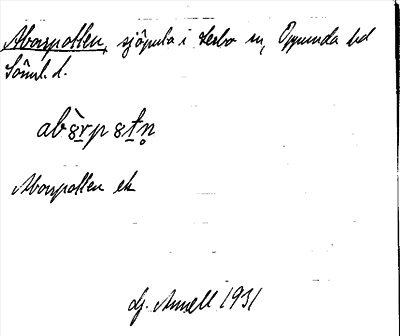 Aborpotten, sjöpula i Lerbo sn, Oppunda hd
Söml. d.
abòrpotn̥
Aborpotten ek
Gj. Annell 1931